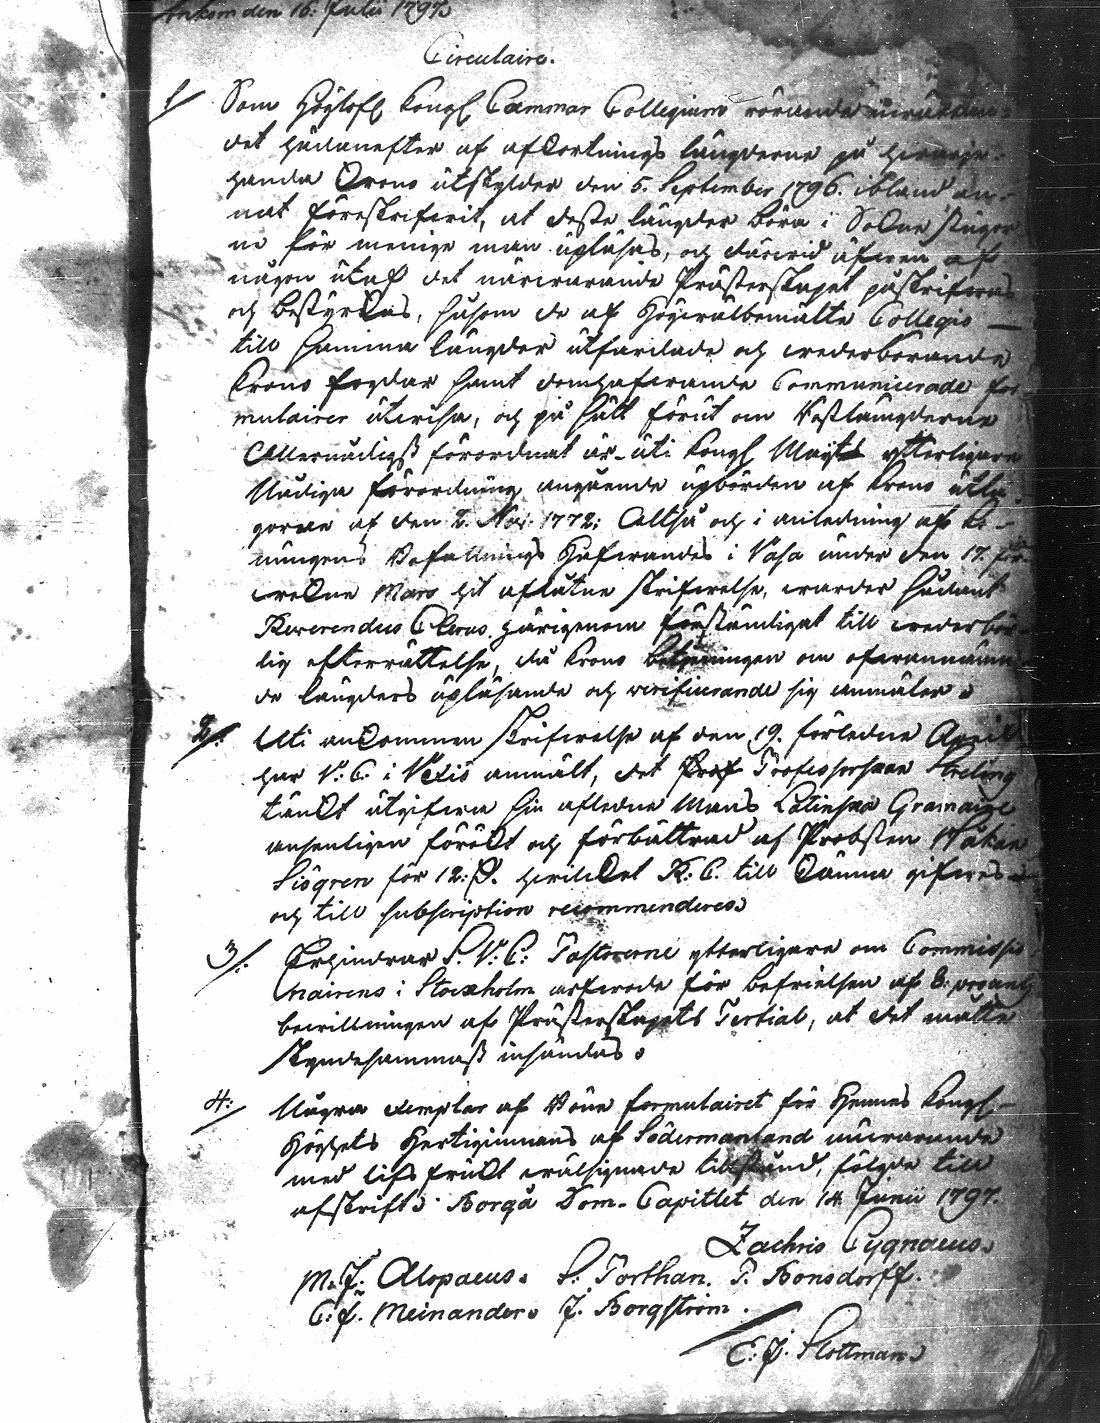 Ankom den 16. Julii 1797.
Circulaire.
1/ Som Höglofl. Kongl. Cammar Collegium rörande
det hädanefter af afkortnings längderne på
handa Krono utskylder den 5. September 1796. ibland an-
nat föreskrifvit, at desse längder böra i Sokne stugor
ne för menige man upläsas, och därvid äfven af
någon utaf det närvarande Prästerskapet påskrifvas
och bestyrkas, såsom de af Högvälbemälte Collegio —
till samma längder utfärdade och vederbörande
Krono fogdar samt domhafvande Communicerade for-
mulairer utvisa, och på sätt förut om Restlängderne
Allernådigst förordnat är uti Kongl. Maj:ts ytterligare
Nådiga förordning angående upbörden af Krono utla-
gorne af den 2. Nov. 1772; Altså och i anledning af Ko-
nungens Befallnings Hafvandes i Vasa under den 17. för-
vekne Mars hit aflåtne skrifvelse, varder sådant
Reverendus Clerus härigenom förständigat till vederbör-
lig efterrättelse, då Krono betjeningen om ofvannämn-
de längders upläsande och verificerande sig anmäler.
2/: Uti ankommen skrifvelse af den 19. förledne April
har V: C. i Vexiö anmält, det Prof Professorskan Streling
tänkt utgifva sin afledne Mans Latinska Gramaire
ansenligen förökt och förbättrad af Probsten Håkan
Siögren för 12: ß. hvilket R: C. till känna gifves
och till subscription recommenderes.
3/: Erhindrar S. V: C: Pastorerne ytterligare om Commissio
nairens i Stockholm arfvode för befrielsen af 8. procents
bevillningen af Prästerskapets Tertial, at det måtte
skyndesammast insändas.
4:/ Några exemplar af Böne formulairet för Hennes Kongl. —
Höghets Hertiginnans af Södermanland nuvarande
med lifs frukt välsignade tillstånd, följde till
afskrift. Borgå Dom-Capitlet den 14 Junii 1797.
Zachris Cygnaeus.
M. J. Alopaeus. S. Porthan. P. Bonsdorff.
C. J. Meinander. J. Borgström.
C. J. Slottman.